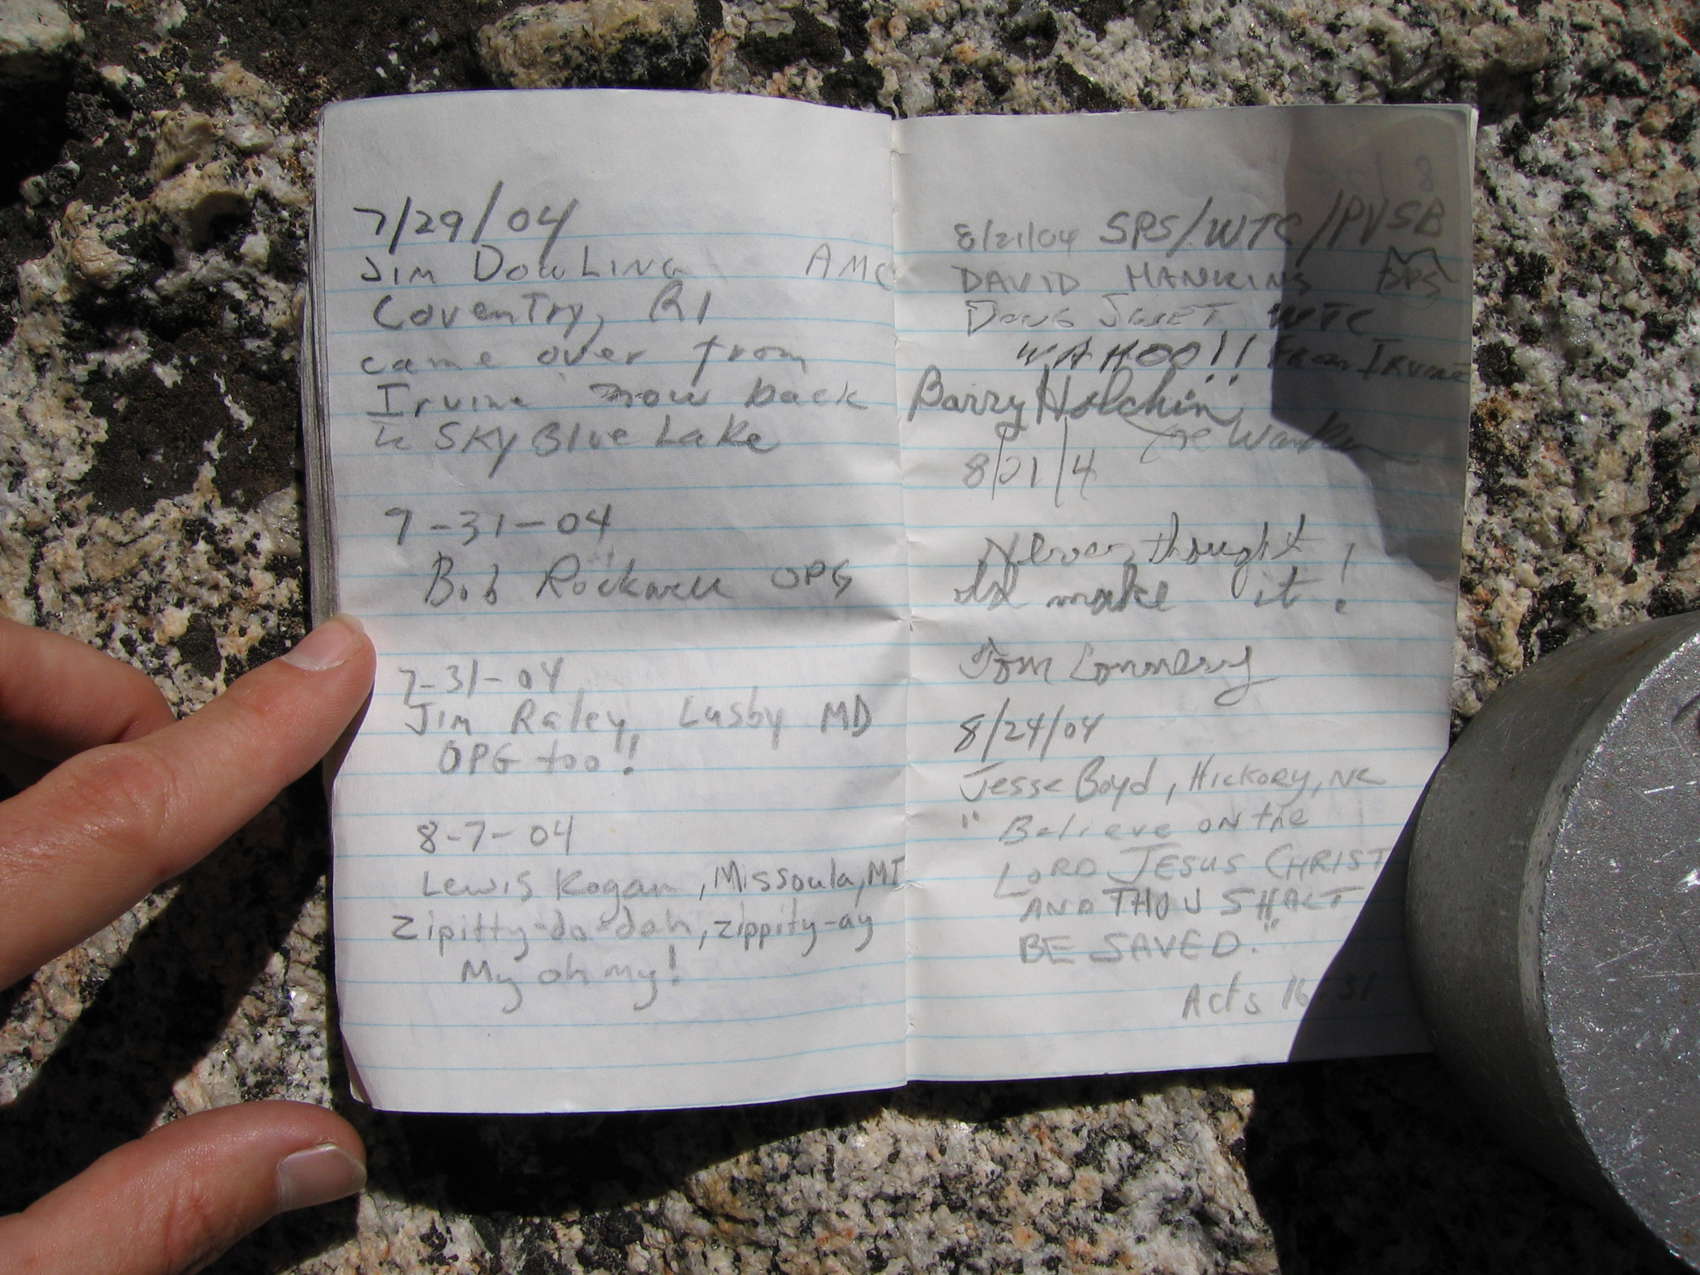 7/29/04
Jim Dowling AMC
Coventry, RI
came over from
Irvine now back
to Sky Blue Lake
7-31-04
Bob Rockwell OPG
7-31-04
Jim Raley, Lusby MD
OPG too!
8-7-04
Lewis Kogan, Missoula, MT
Zipitty-do-dah, zippity-ay
My oh my!
8/21/04 SPS/WTC/PVSB
DAVID HANKINS SPS
Doug WTC
WAHOO!! From Irvine
Barry Holchin
8/21/4
Never thought
I'd make it!
Tom
8/24/04
Jesse Boyd, Hickory, NC
"Believe on the
LORD JESUS CHRIST
AND THOU SHALT
BE SAVED."
Acts 16:31